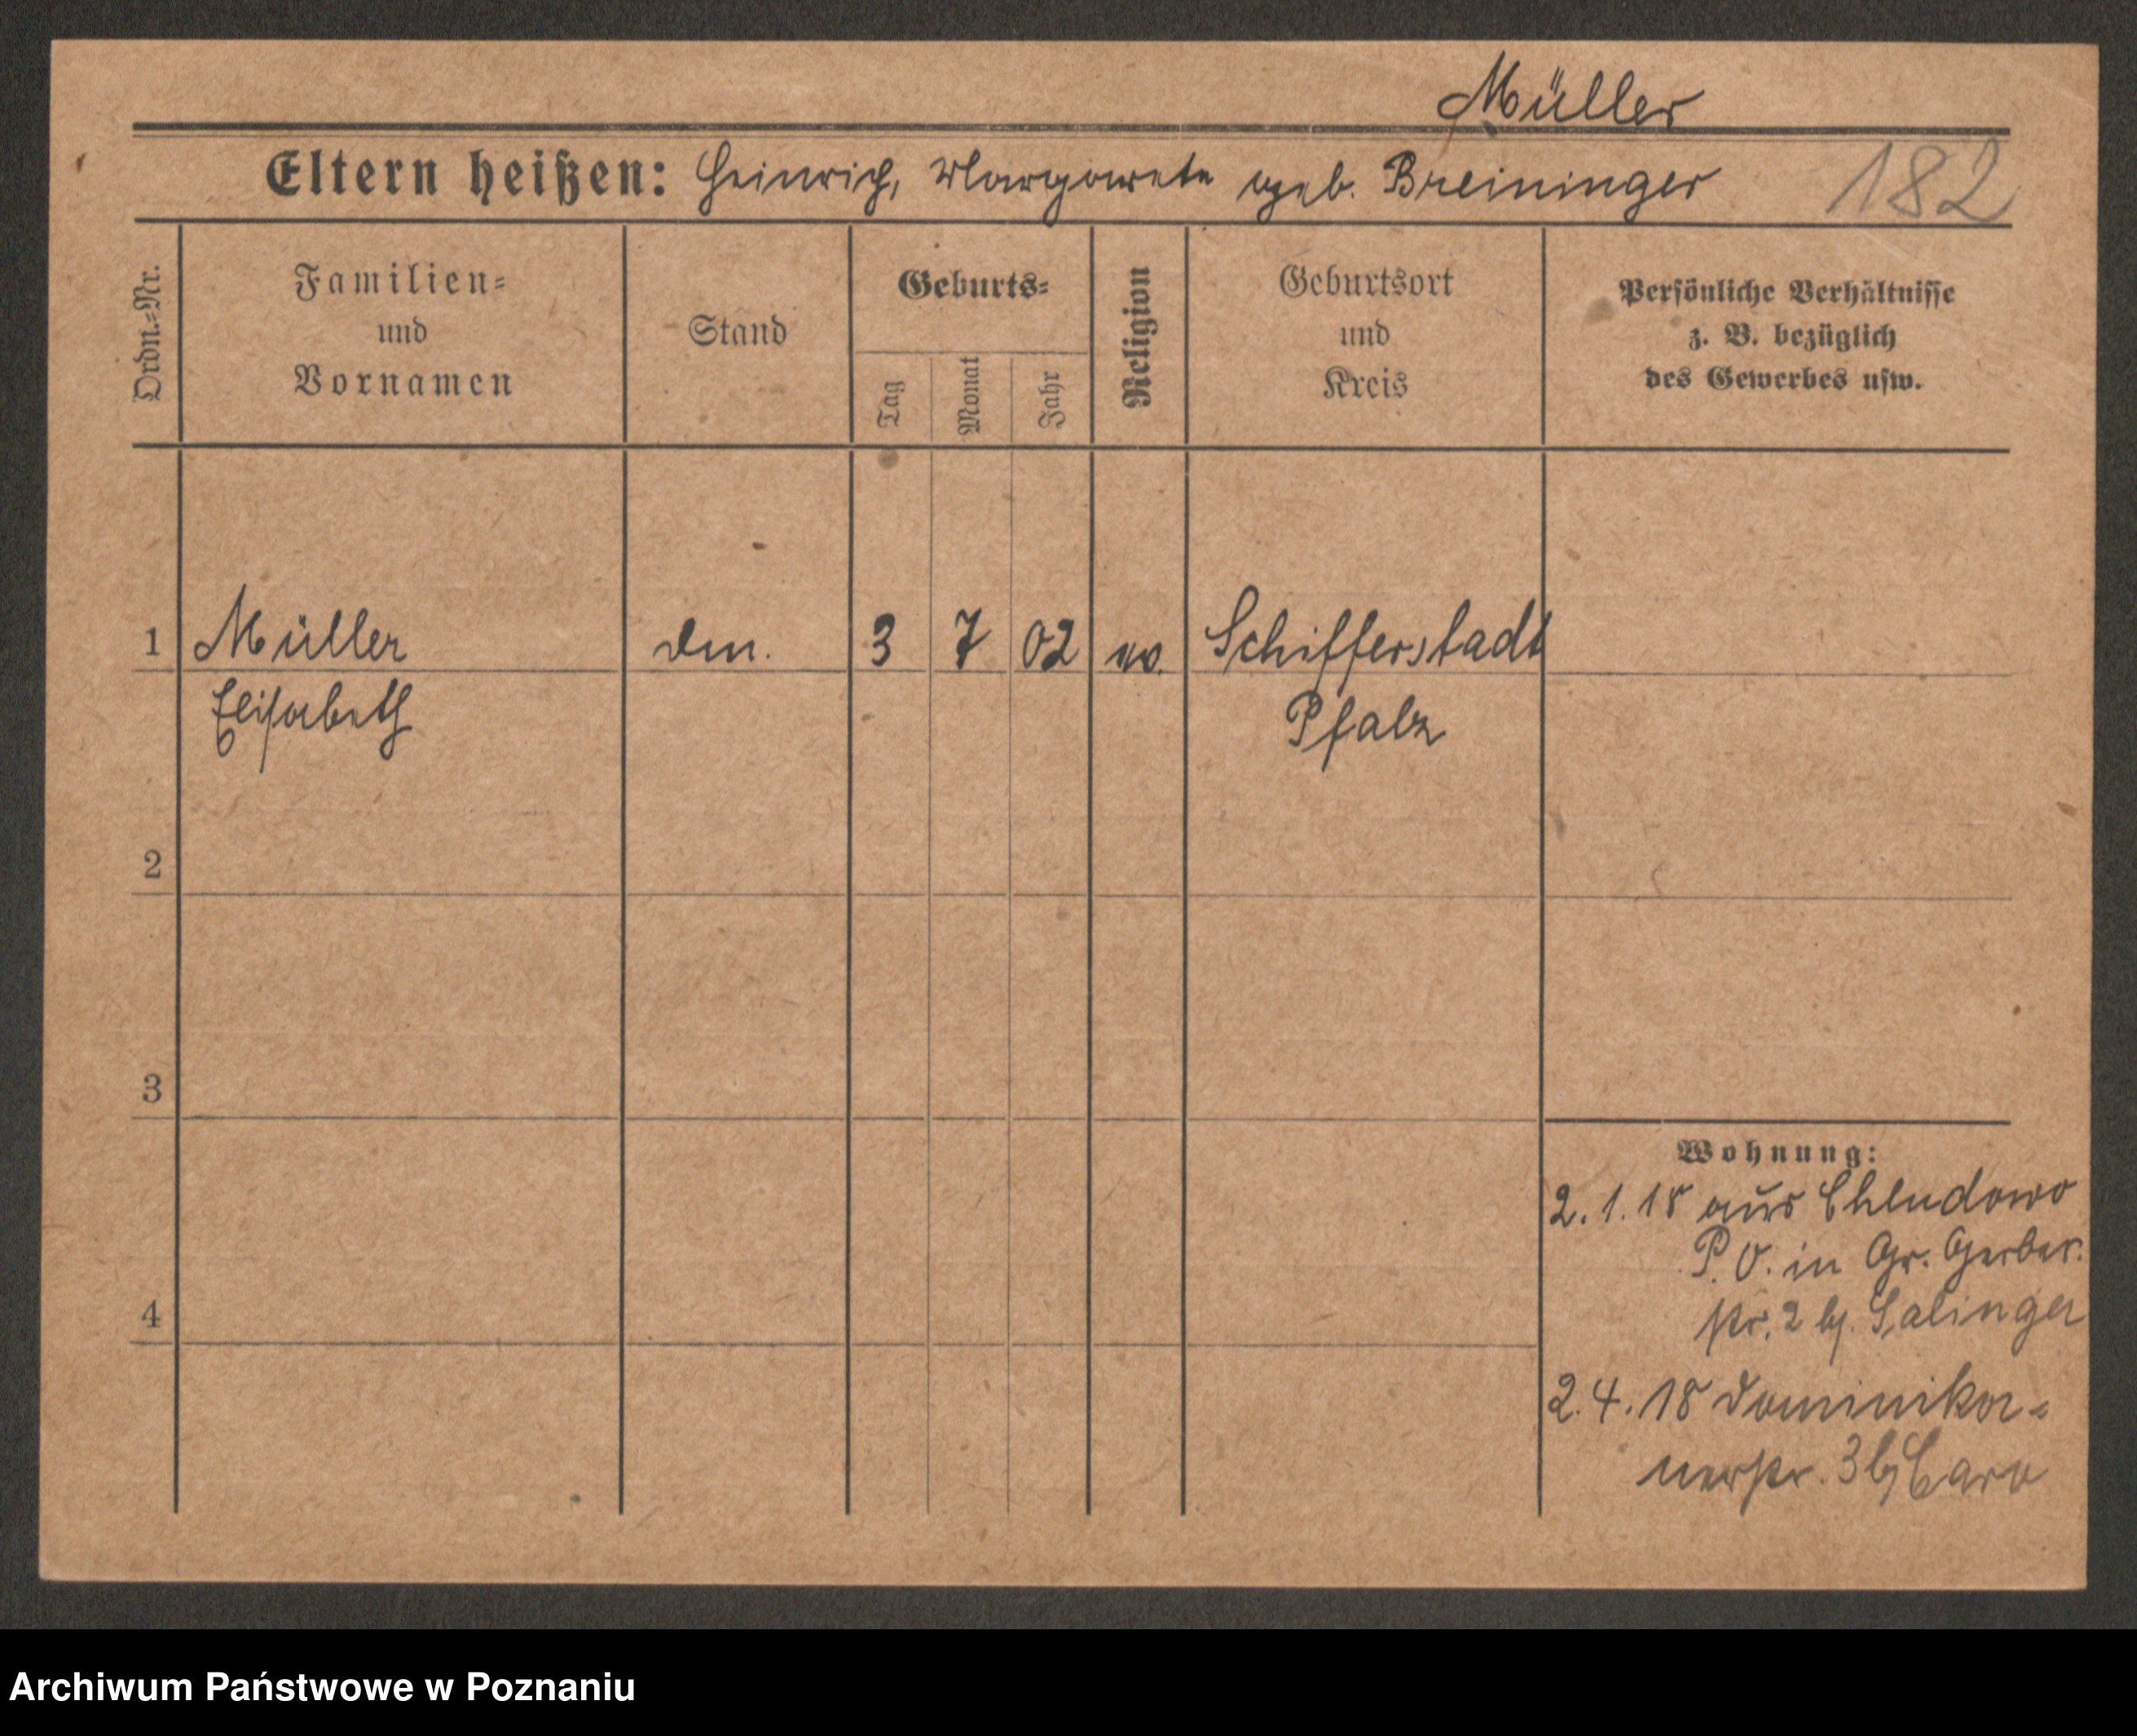 Müller
Eltern heißen: Heinrich, Margarete geb. Breininger 182
Ordn.-Nr.
Familien-
und
Vornamen
Stand
Geburts-
Tag
Monat
Jahr
Religion
Geburtsort
und
Kreis
Persönliche Verhältnisse
z. B. bezüglich
des Gewerbes usw.
1 Müller 3 7 02 Schifferstadt
Elisabeth Pfalz
2
3
4
Wohnung:
2.1.18 aus Chludowo
P. O. in Gr. Gerber.
str. 2 bj. Salinger
2.4.18 Dominika-
nerstr. 3 bj Caro
Archiwum Państwowe w Poznaniu